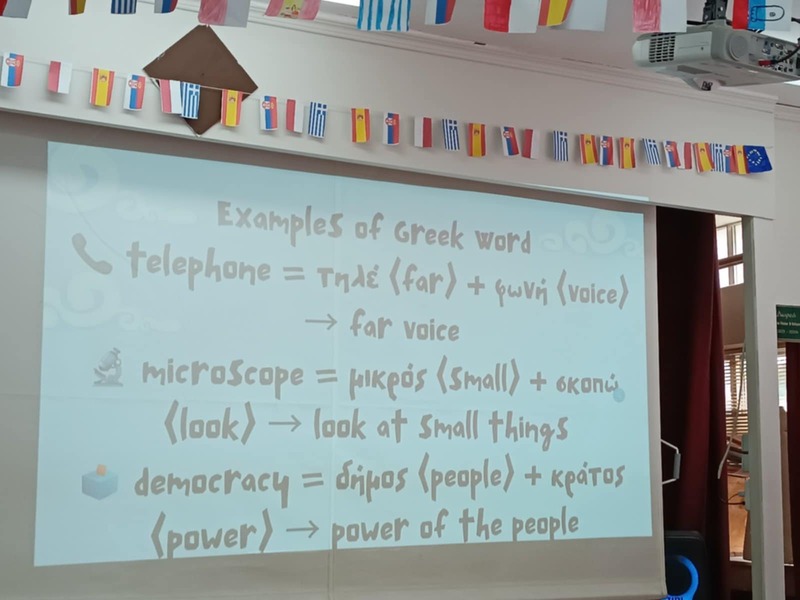 Examples of Greek Word
telephone = τηλέ (far) + φωνή (voice)
→ far voice
microscope = μικρός (small) + σκοπώ
(look) → look at small things
democracy = δήμος (people) + κράτος
(power) → power of the people